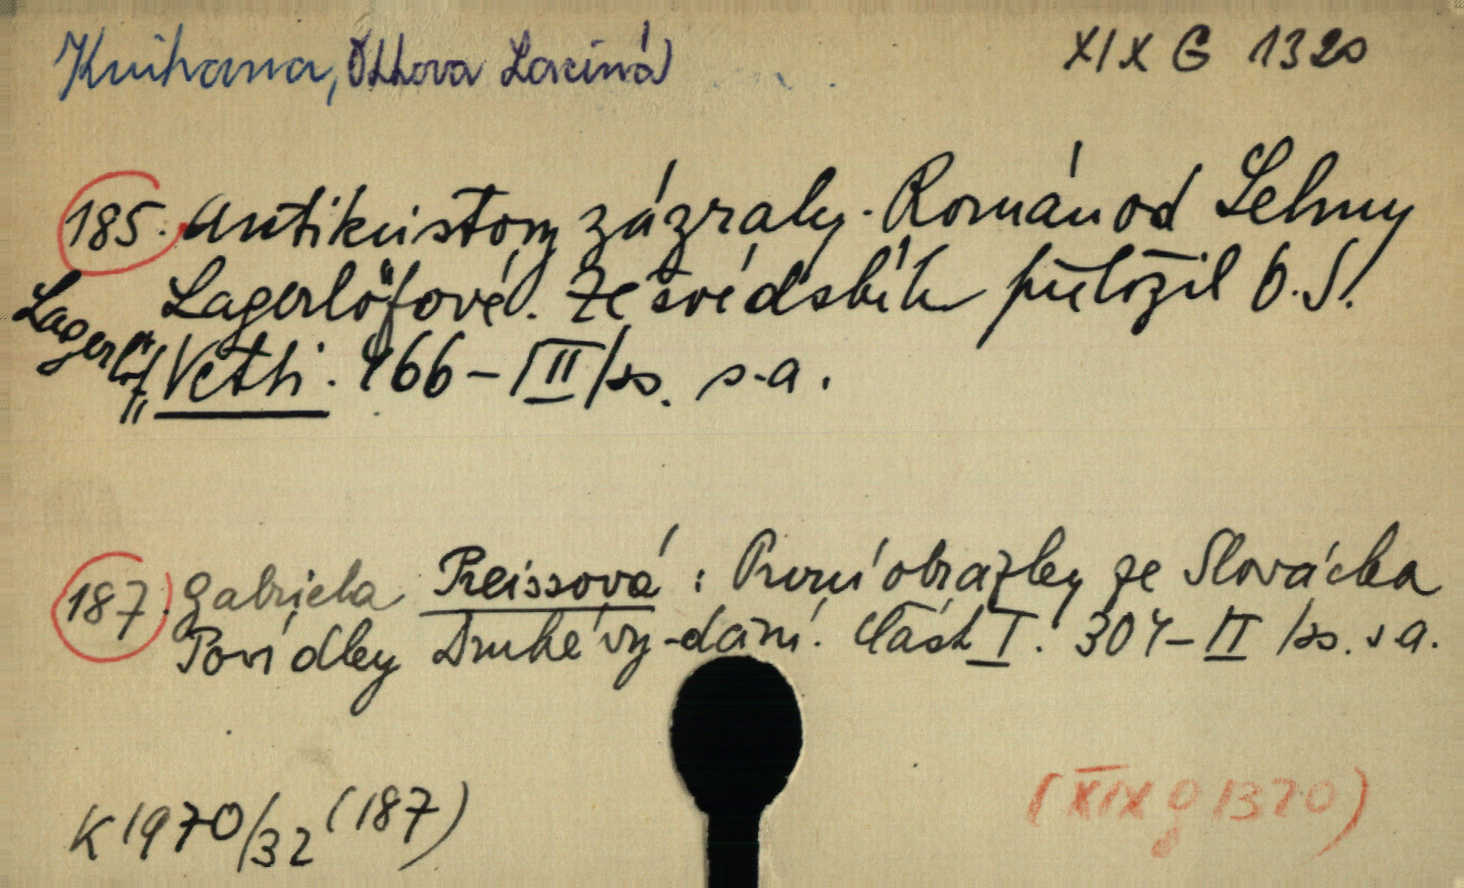 Knihovna, Ottova Laciná XIX G 1320
185. Antikristovy zázraky. Román od Selmy
Lagerlöfové. Ze švédských přeložil O. S.
Lagerlöf Vetti. 466-III/ss. s.a.
187. Gabriela Preissová: První obrázky ze Slovácka
Povídky Druhé vy-dání. Část I. 304-II/ss. s.a.
K 1970/32 (187)
(XIX g 1320)